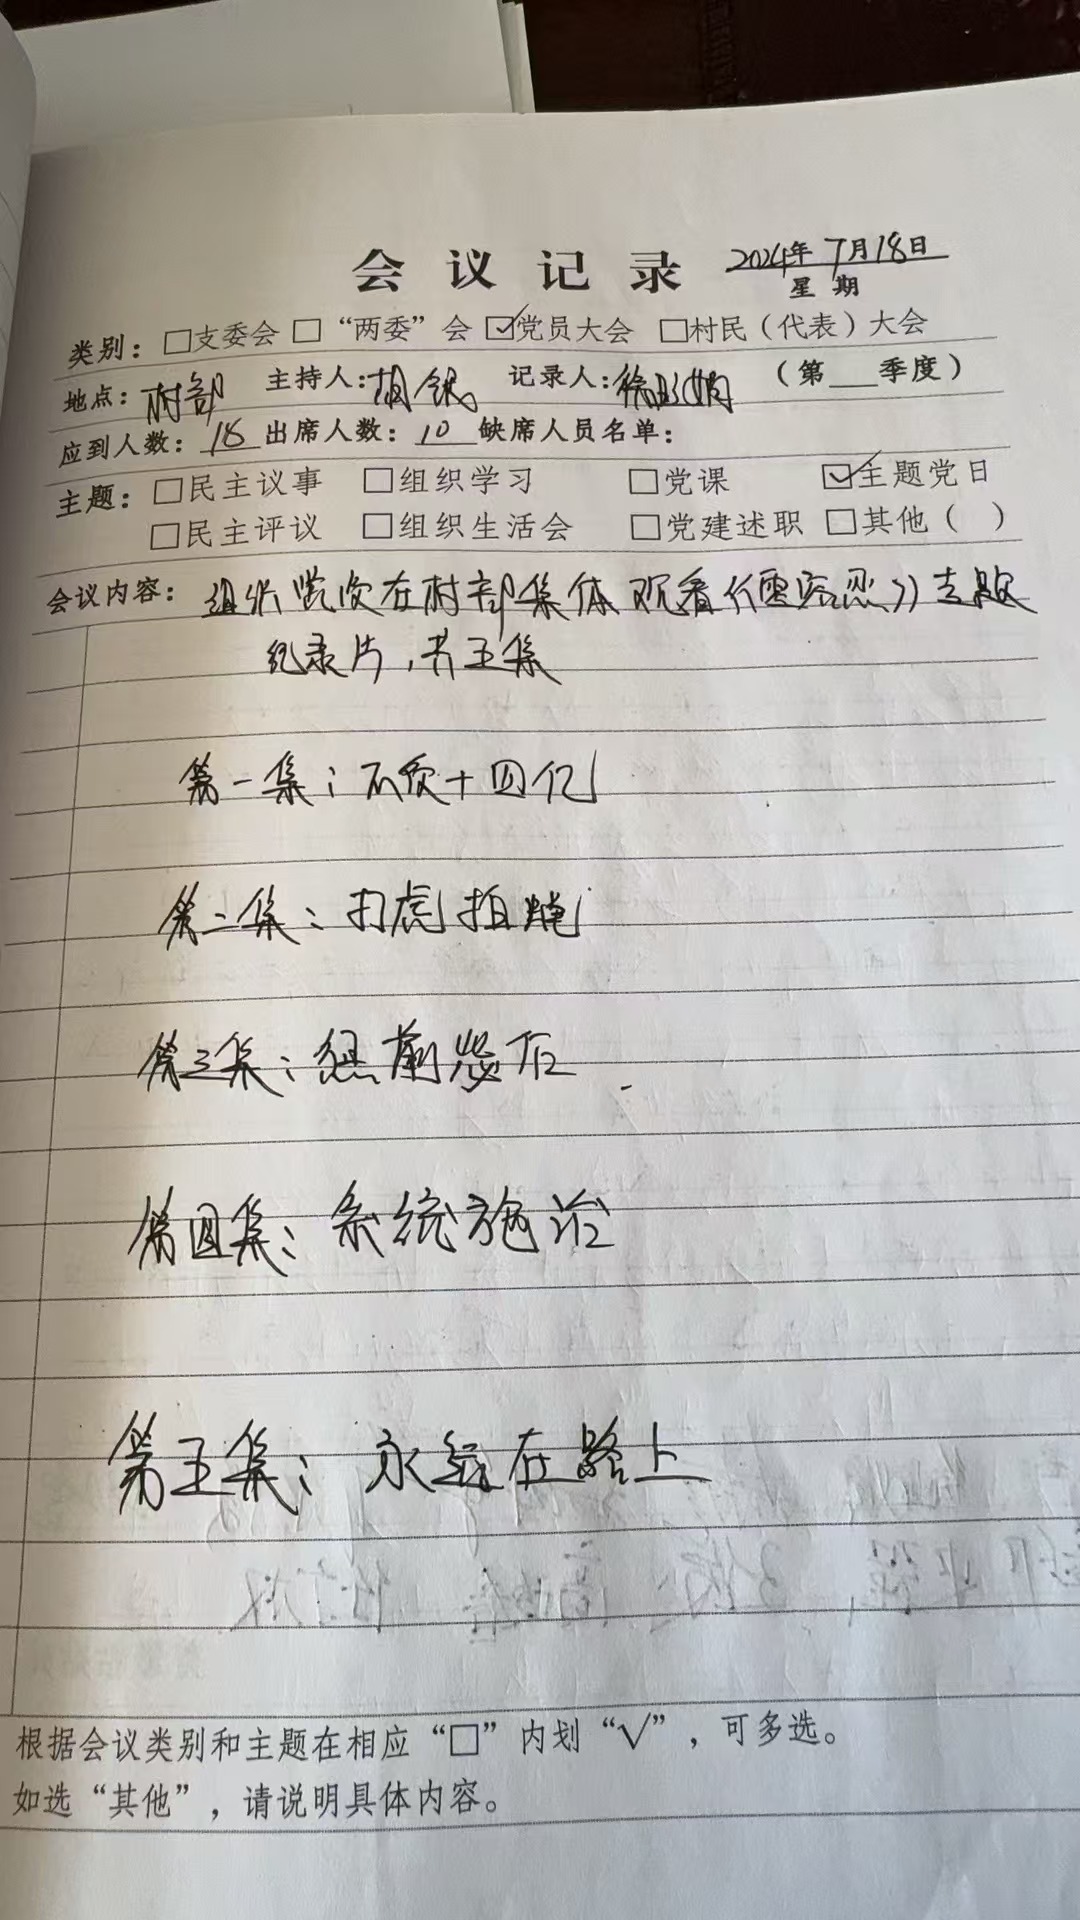 会议记录 2024年7月18日
星期
类别：□支委会 □“两委”会 ☑党员大会 □村民（代表）大会
地点：村部 主持人：胡 记录人：徐 （第___季度）
应到人数：18 出席人数：10 缺席人员名单：
主题：□民主议事 □组织学习 □党课 ☑主题党日
□民主评议 □组织生活会 □党建述职 □其他（ ）
会议内容：组织党员在村部集体观看《零容忍》专题
纪录片，共五集
第一集：不负十四亿
第二集：打虎拍蝇
第三集：惩前毖后
第四集：系统施治
第五集：永远在路上
根据会议类别和主题在相应“□”内划“√”，可多选。
如选“其他”，请说明具体内容。